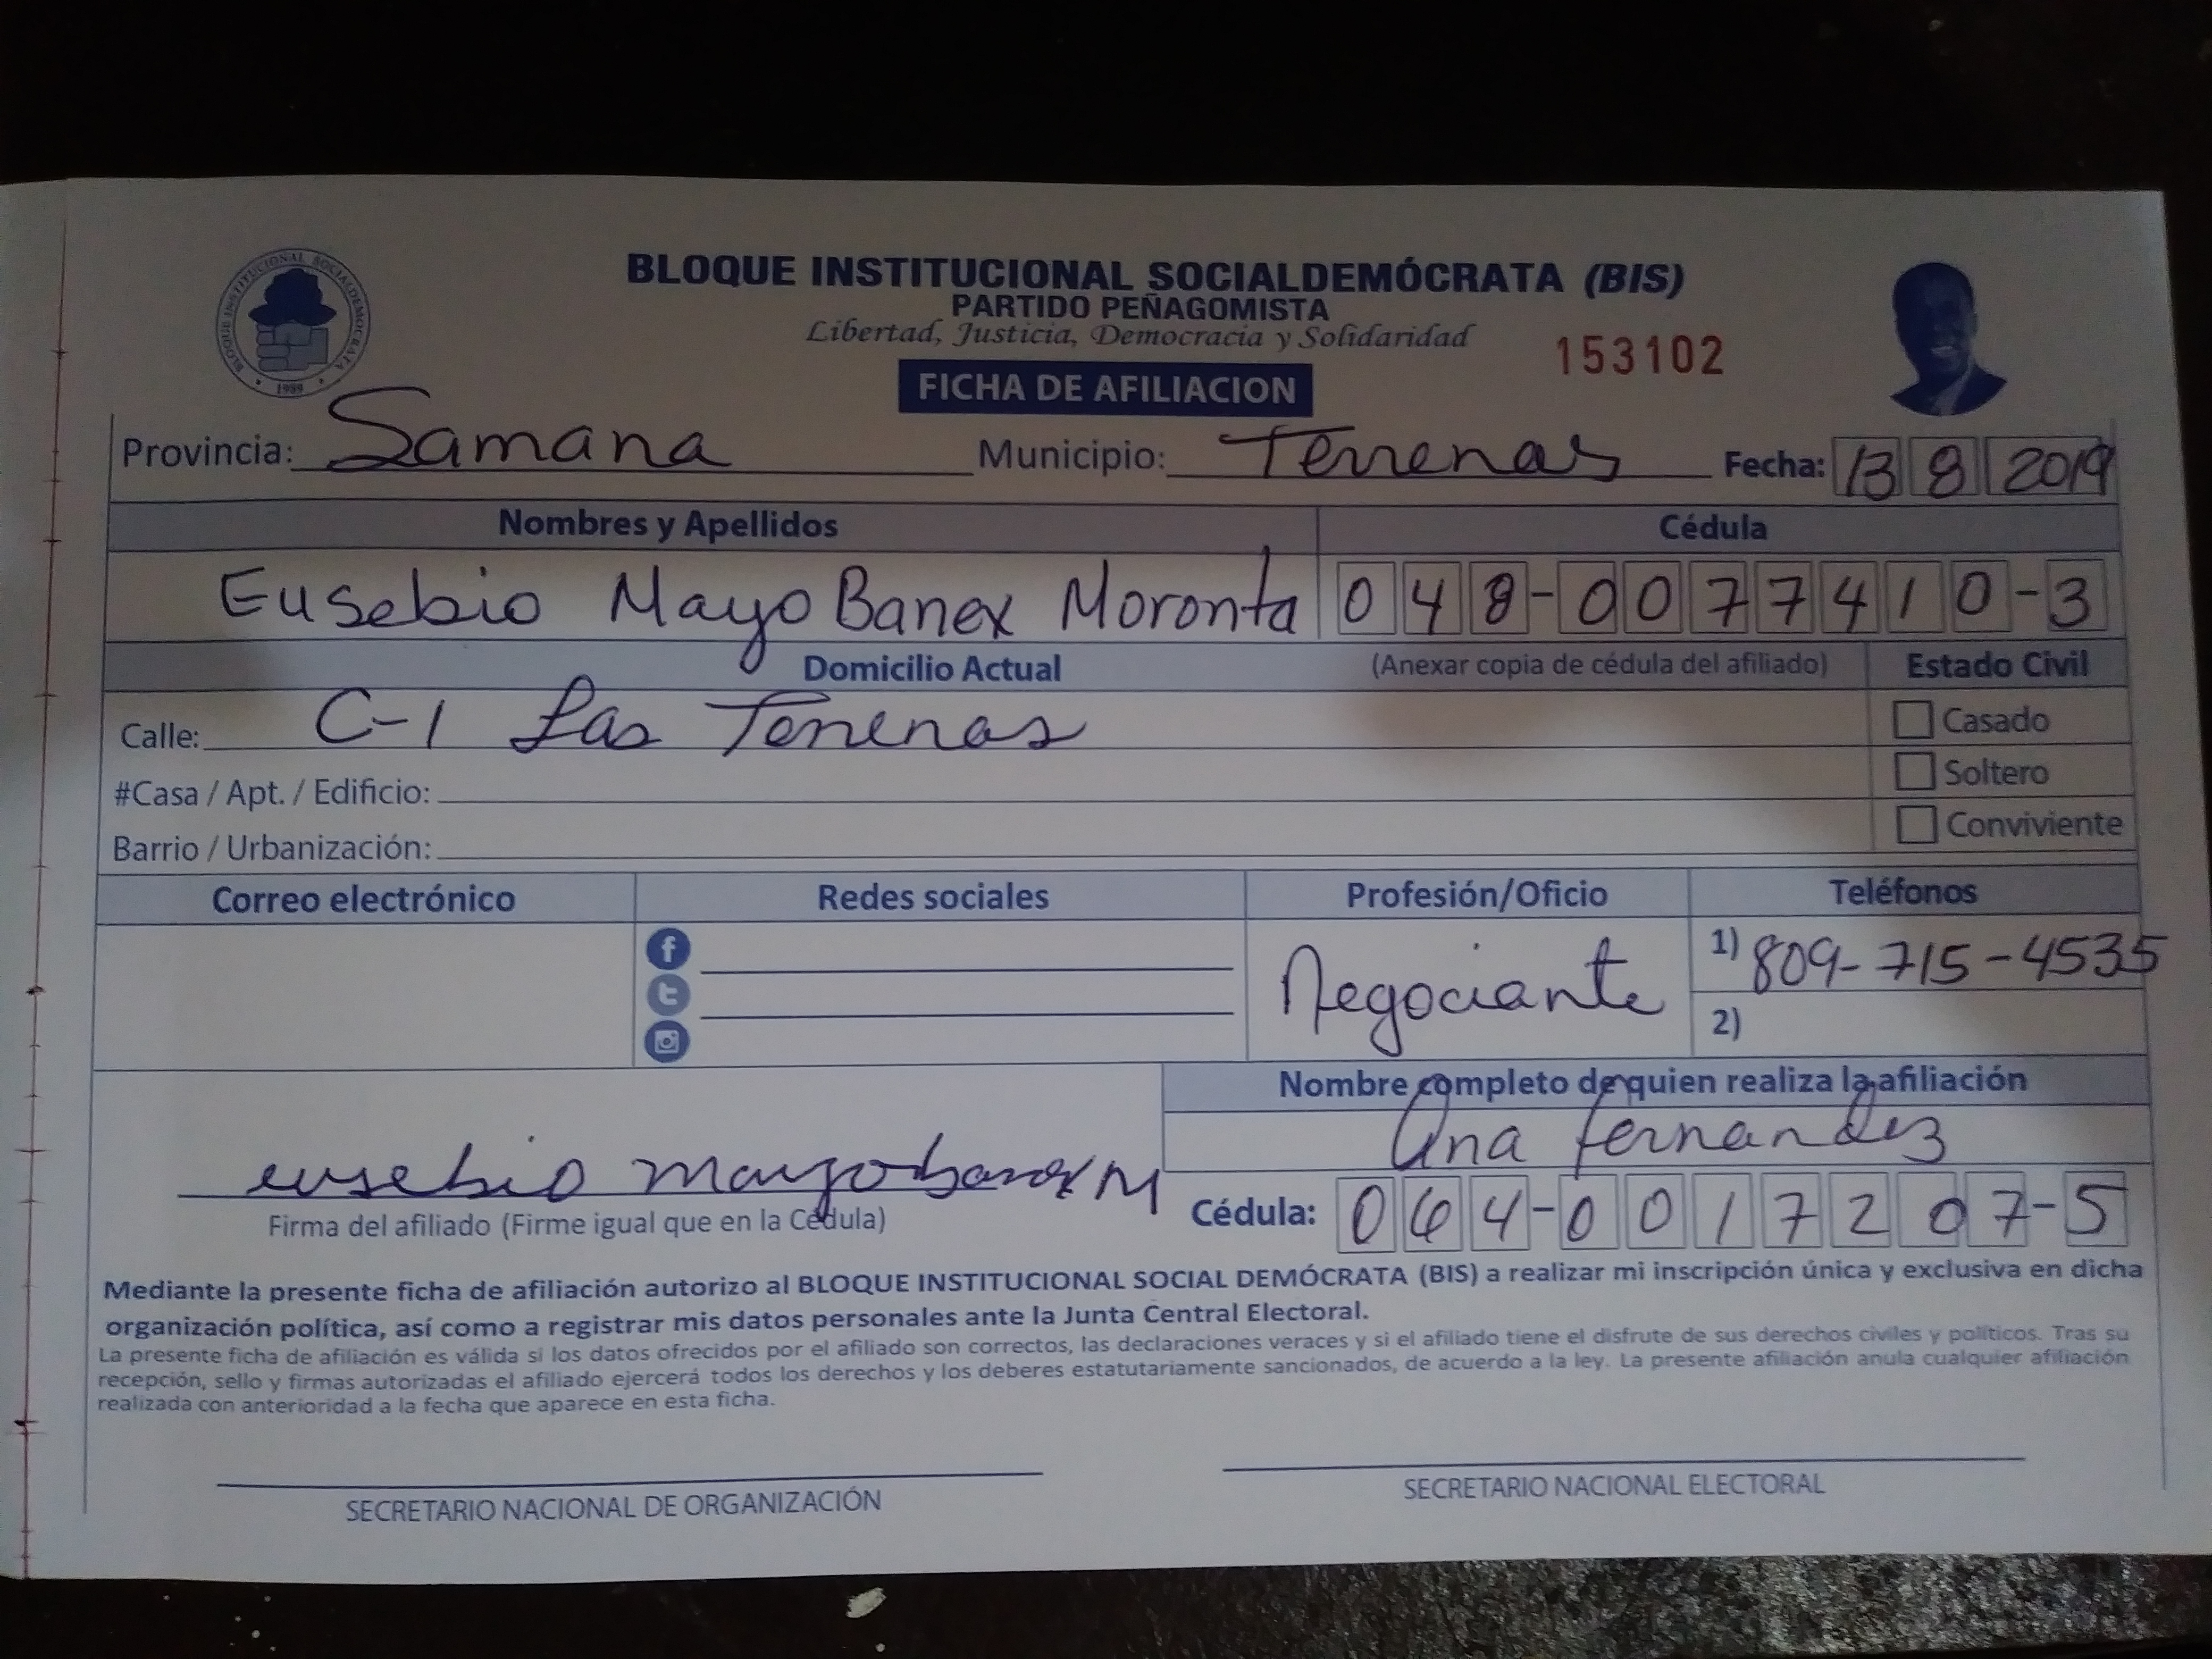 BLOQUE INSTITUCIONAL SOCIALDEMOCRATA
1989
BLOQUE INSTITUCIONAL SOCIALDEMÓCRATA (BIS)
PARTIDO PEÑAGOMISTA
Libertad, Justicia, Democracia y Solidaridad
153102
FICHA DE AFILIACION
Provincia: Samana Municipio: Terrenas Fecha: 13 8 2019
Nombres y Apellidos Cédula
Eusebio Mayo Banex Moronta 048-0077410-3
Domicilio Actual (Anexar copia de cédula del afiliado) Estado Civil
Calle: C-1 Las Terrenas Casado
#Casa / Apt. / Edificio: Soltero
Barrio / Urbanización: Conviviente
Correo electrónico Redes sociales Profesión/Oficio Teléfonos
Negociante 1) 809-715-4535
2)
Nombre completo de quien realiza la afiliación
Ana fernandez
eusebio mayobanex M
Firma del afiliado (Firme igual que en la Cédula) Cédula: 064-0017207-5
Mediante la presente ficha de afiliación autorizo al BLOQUE INSTITUCIONAL SOCIAL DEMÓCRATA (BIS) a realizar mi inscripción única y exclusiva en dicha
organización política, así como a registrar mis datos personales ante la Junta Central Electoral.
La presente ficha de afiliación es válida si los datos ofrecidos por el afiliado son correctos, las declaraciones veraces y si el afiliado tiene el disfrute de sus derechos civiles y políticos. Tras su
recepción, sello y firmas autorizadas el afiliado ejercerá todos los derechos y los deberes estatutariamente sancionados, de acuerdo a la ley. La presente afiliación anula cualquier afiliación
realizada con anterioridad a la fecha que aparece en esta ficha.
SECRETARIO NACIONAL DE ORGANIZACIÓN SECRETARIO NACIONAL ELECTORAL